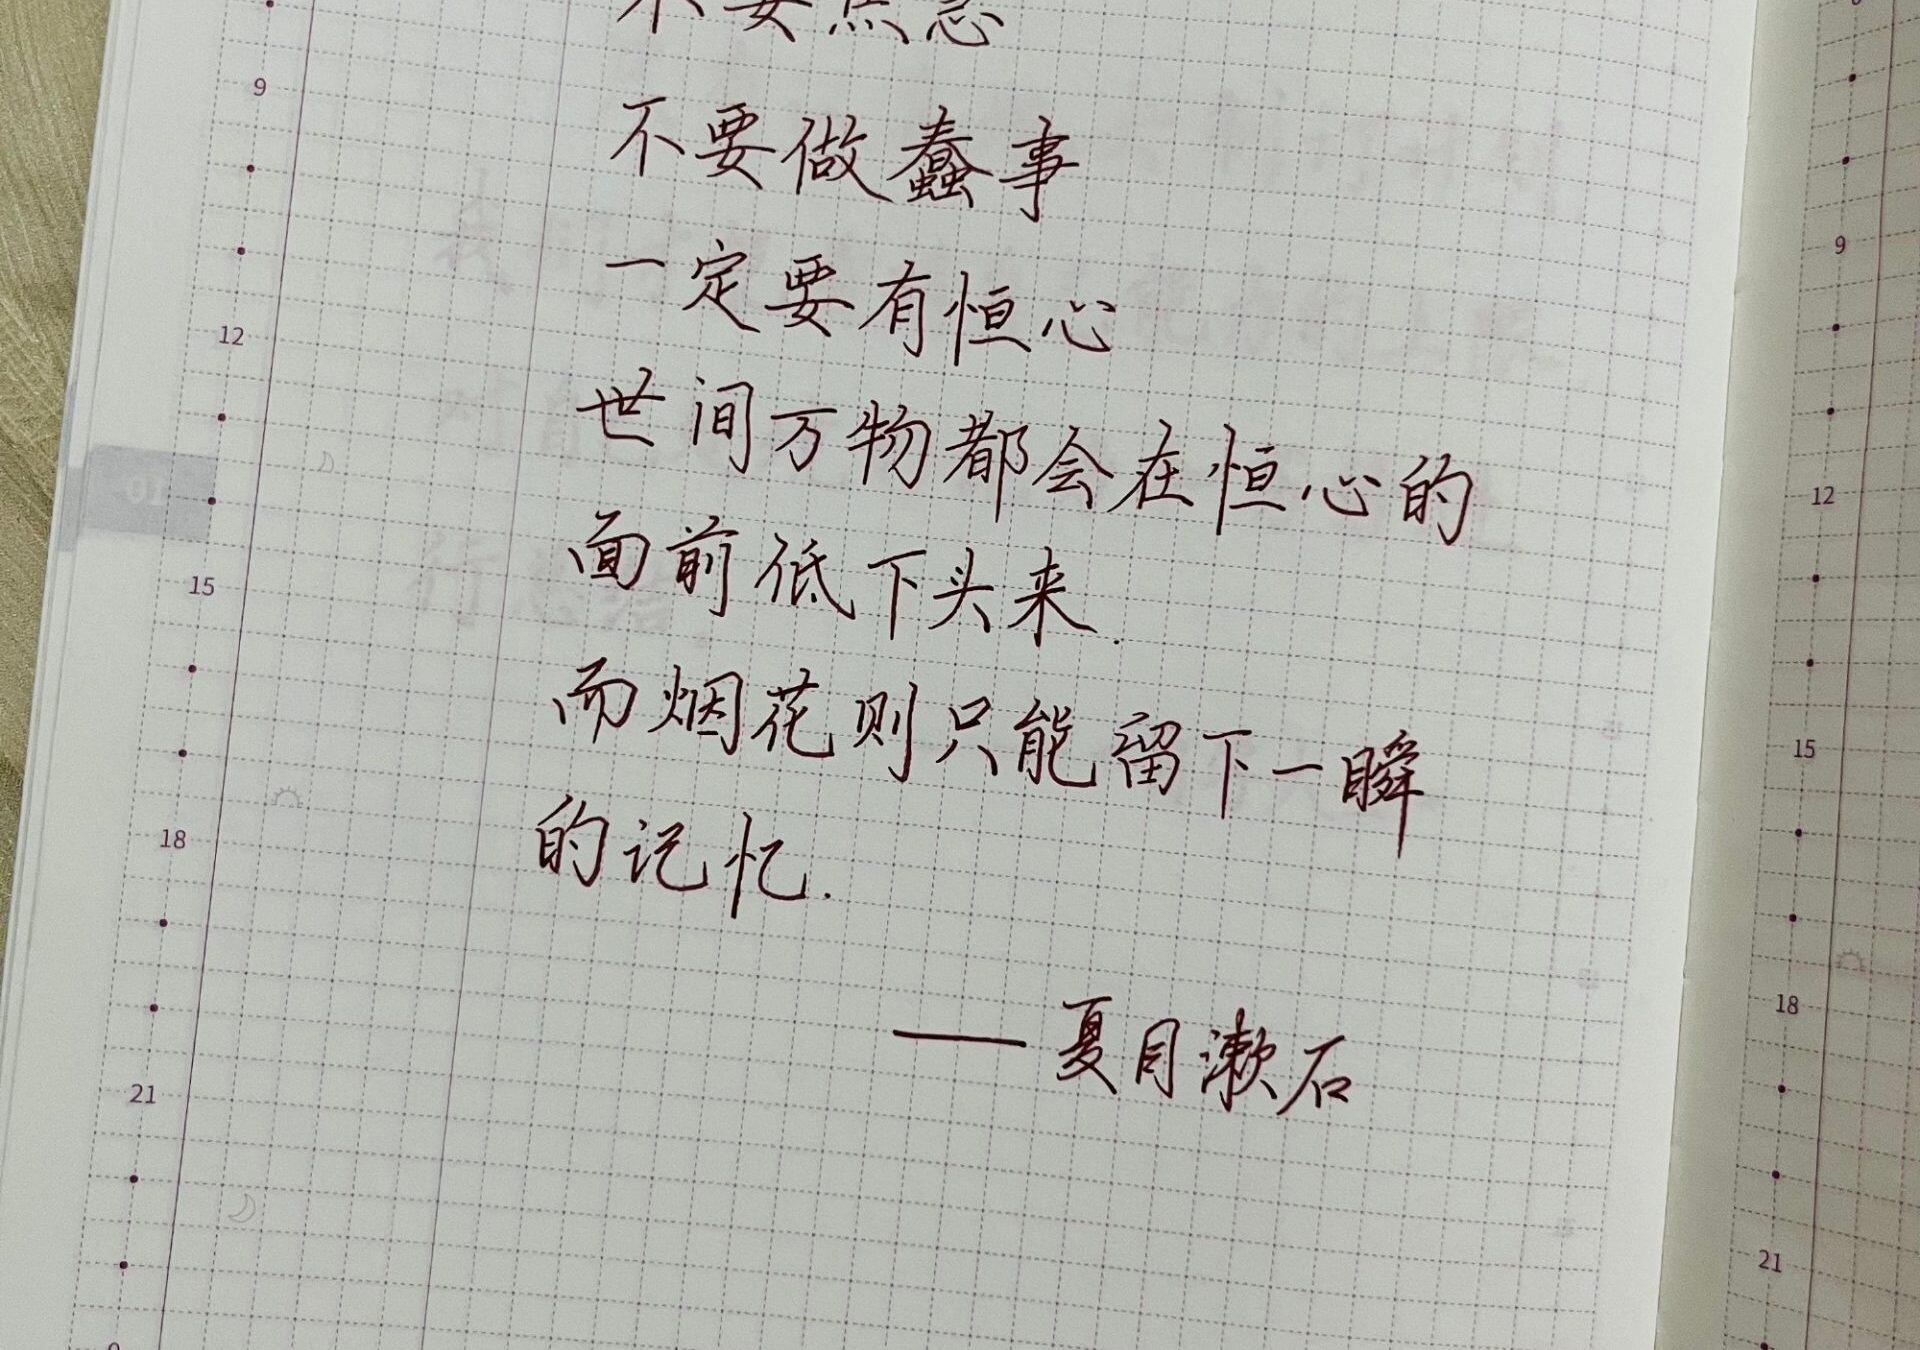 不要焦急
9
不要做蠢事
一定要有恒心
12
世间万物都会在恒心的
面前低下头来.
15
而烟花则只能留下一瞬
的记忆.
18
——夏目漱石
21
10
9
12
15
18
21